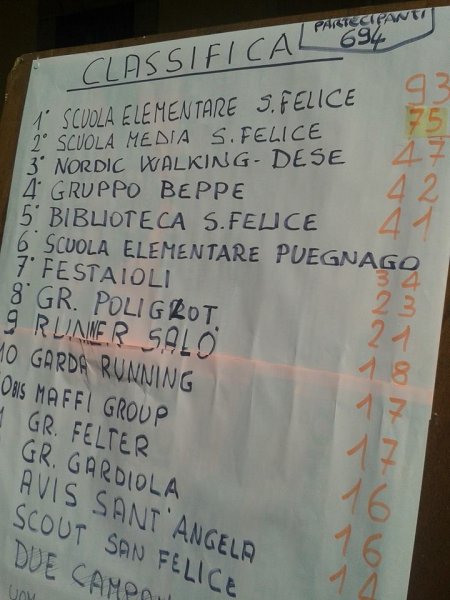 PARTECIPANTI
694
CLASSIFICA
1° SCUOLA ELEMENTARE S.FELICE 93
2° SCUOLA MEDIA S.FELICE 75
3° NORDIC WALKING-DESE 47
4° GRUPPO BEPPE 42
5° BIBLIOTECA S.FELICE 41
6° SCUOLA ELEMENTARE PUEGNAGO 34
7° FESTAIOLI 23
8° GR. POLIGLOT. 21
9 RUNNER SALÒ 18
10 GARDA RUNNING 17
10BIS MAFFI GROUP 17
GR. FELTER 16
GR. GARDIOLA 16
AVIS SANT'ANGELA 14
SCOUT SAN FELICE
DUE